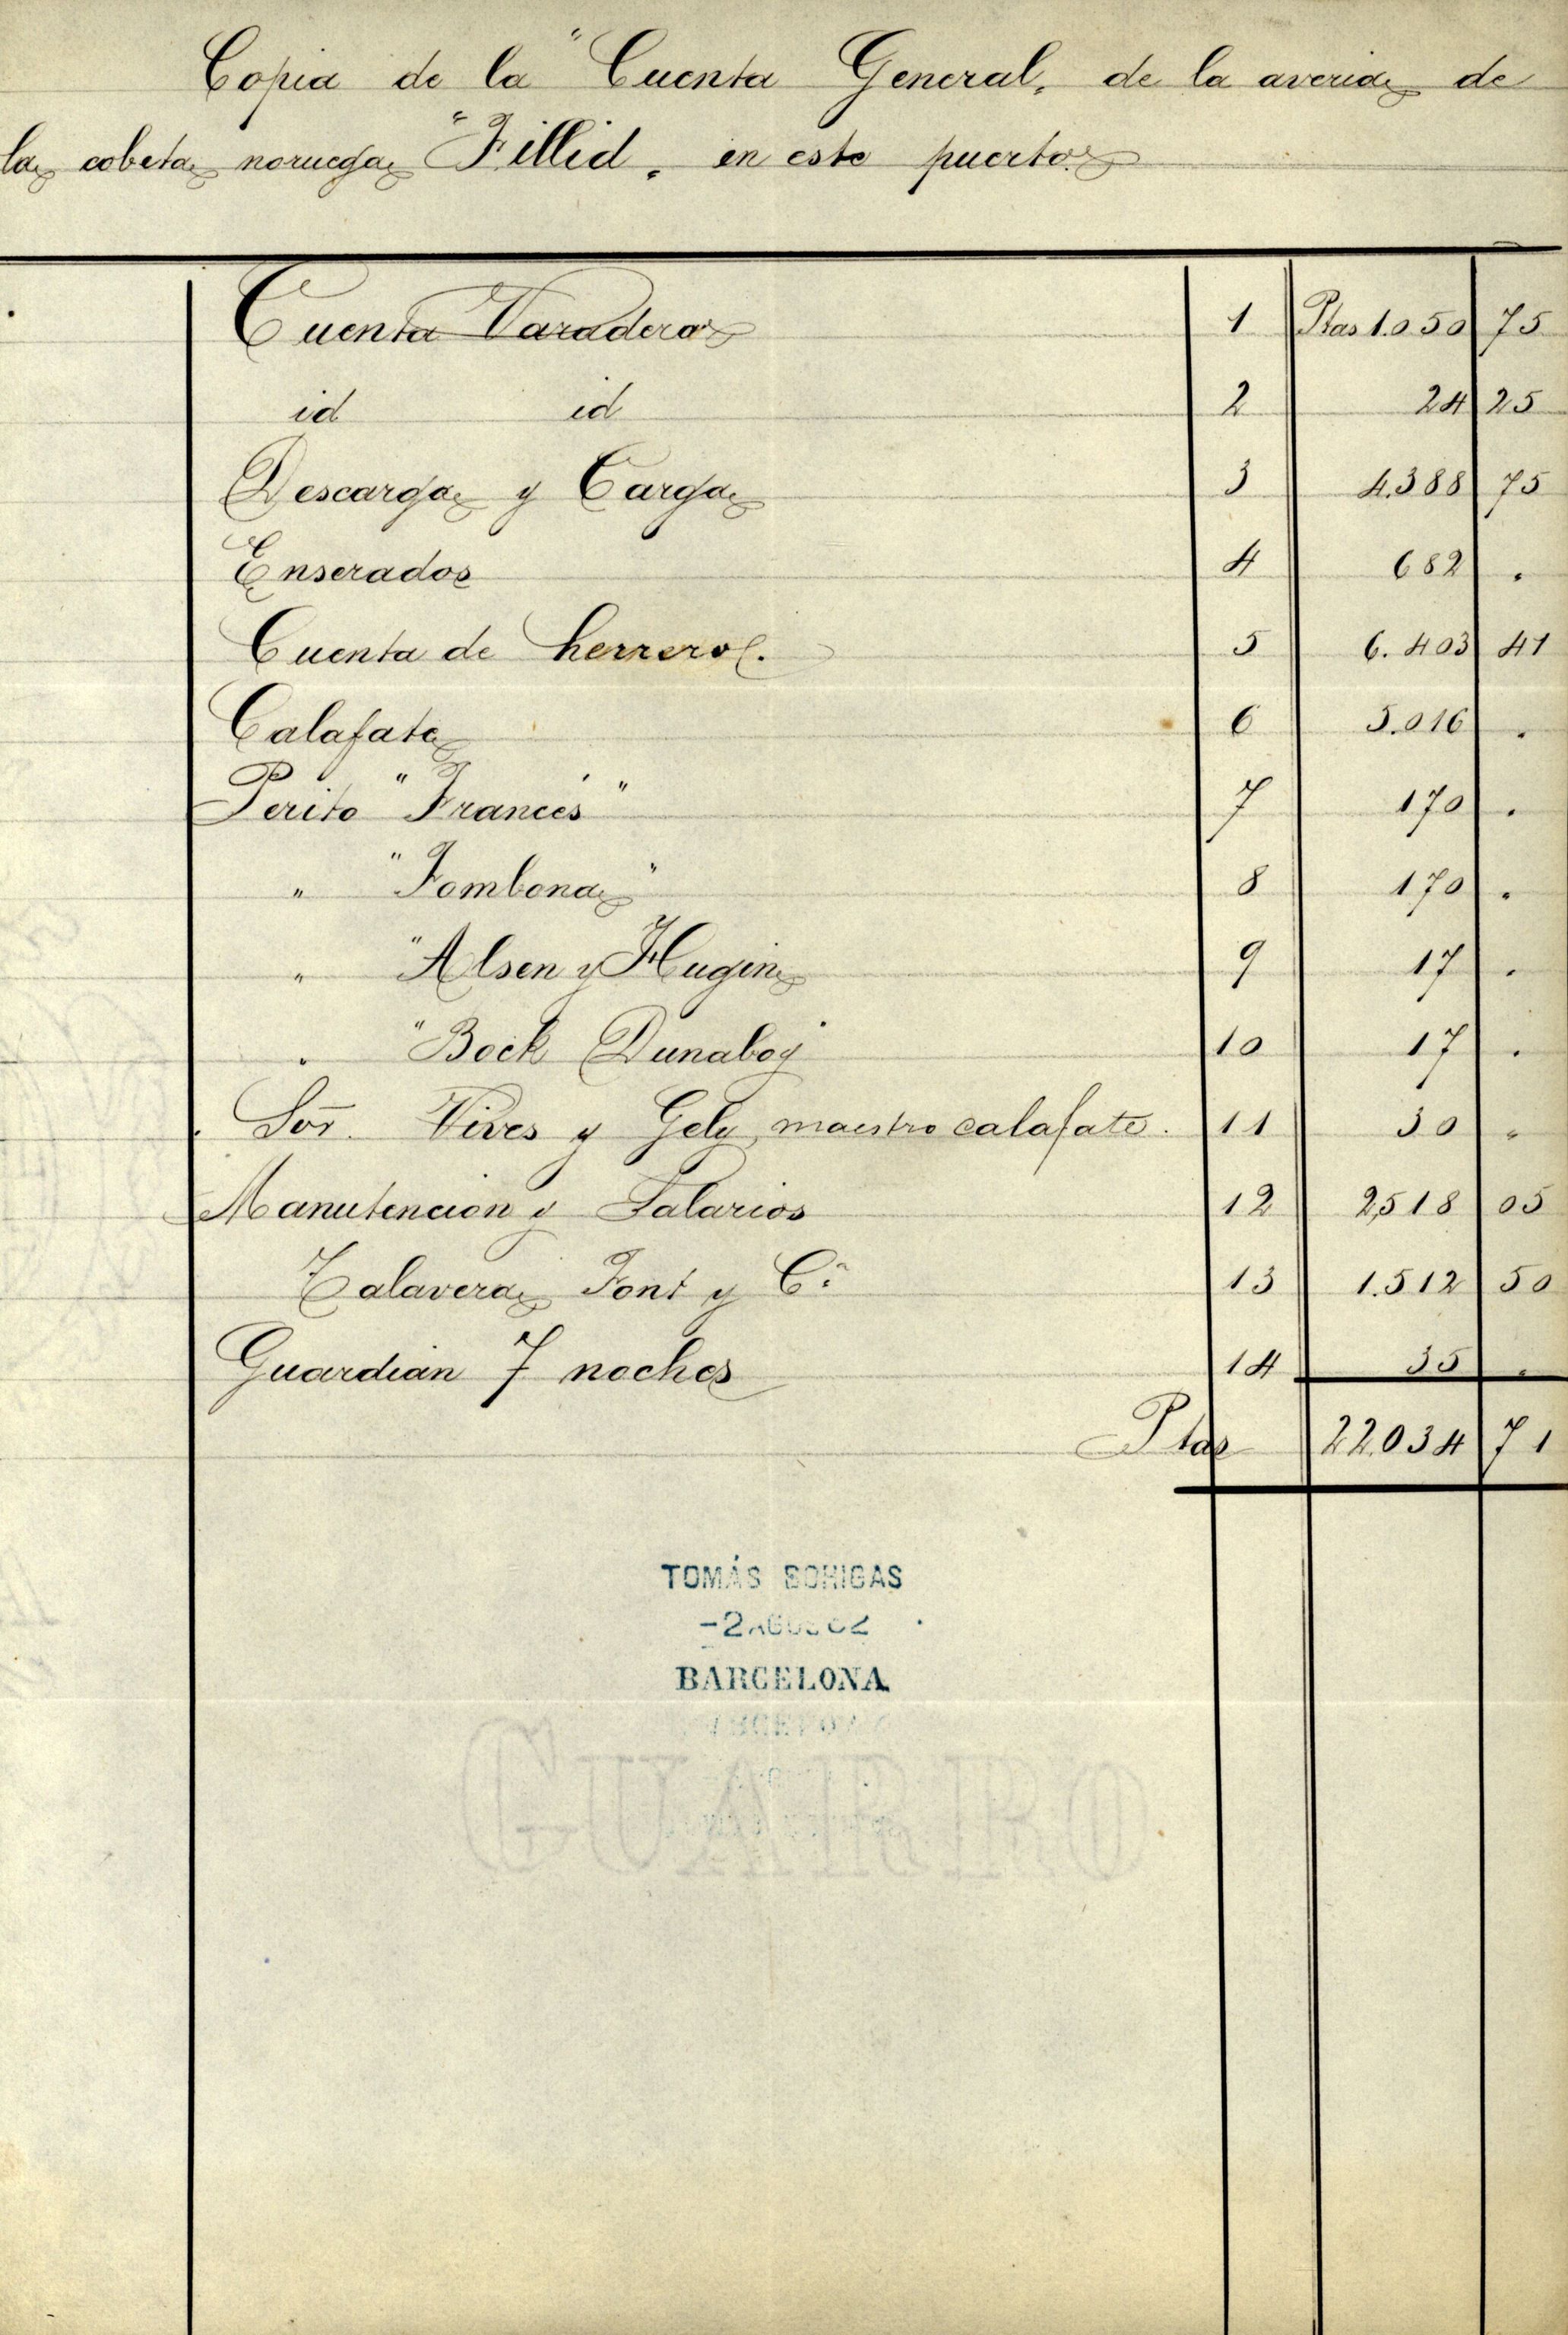 Copia de la "Cuenta General" de la averia de
la cobeta noruega "Fillid" en este puerto.
Cuenta Varadero 1 Ptas 1.050 75
id id 2 24 25
Descarga y Carga 3 4.388 75
Enserados 4 682 .
Cuenta de herrero. 5 6.403 41
Calafate 6 5.016 .
Perito "Francés" 7 170 .
" "Fombona" 8 170 .
" "Alsen y Hugin 9 17 .
" "Bock Dunaboy" 10 17 .
Sor. Vives y Gely maestro calafate. 11 30 "
Manutencion y Salarios 12 2,518 05
Talavera Font y Cª 13 1.512 50
Guardian 7 noches 14 35 .
Ptas 22.034 71
TOMÁS BOHIGAS
-2 AGO
BARCELONA